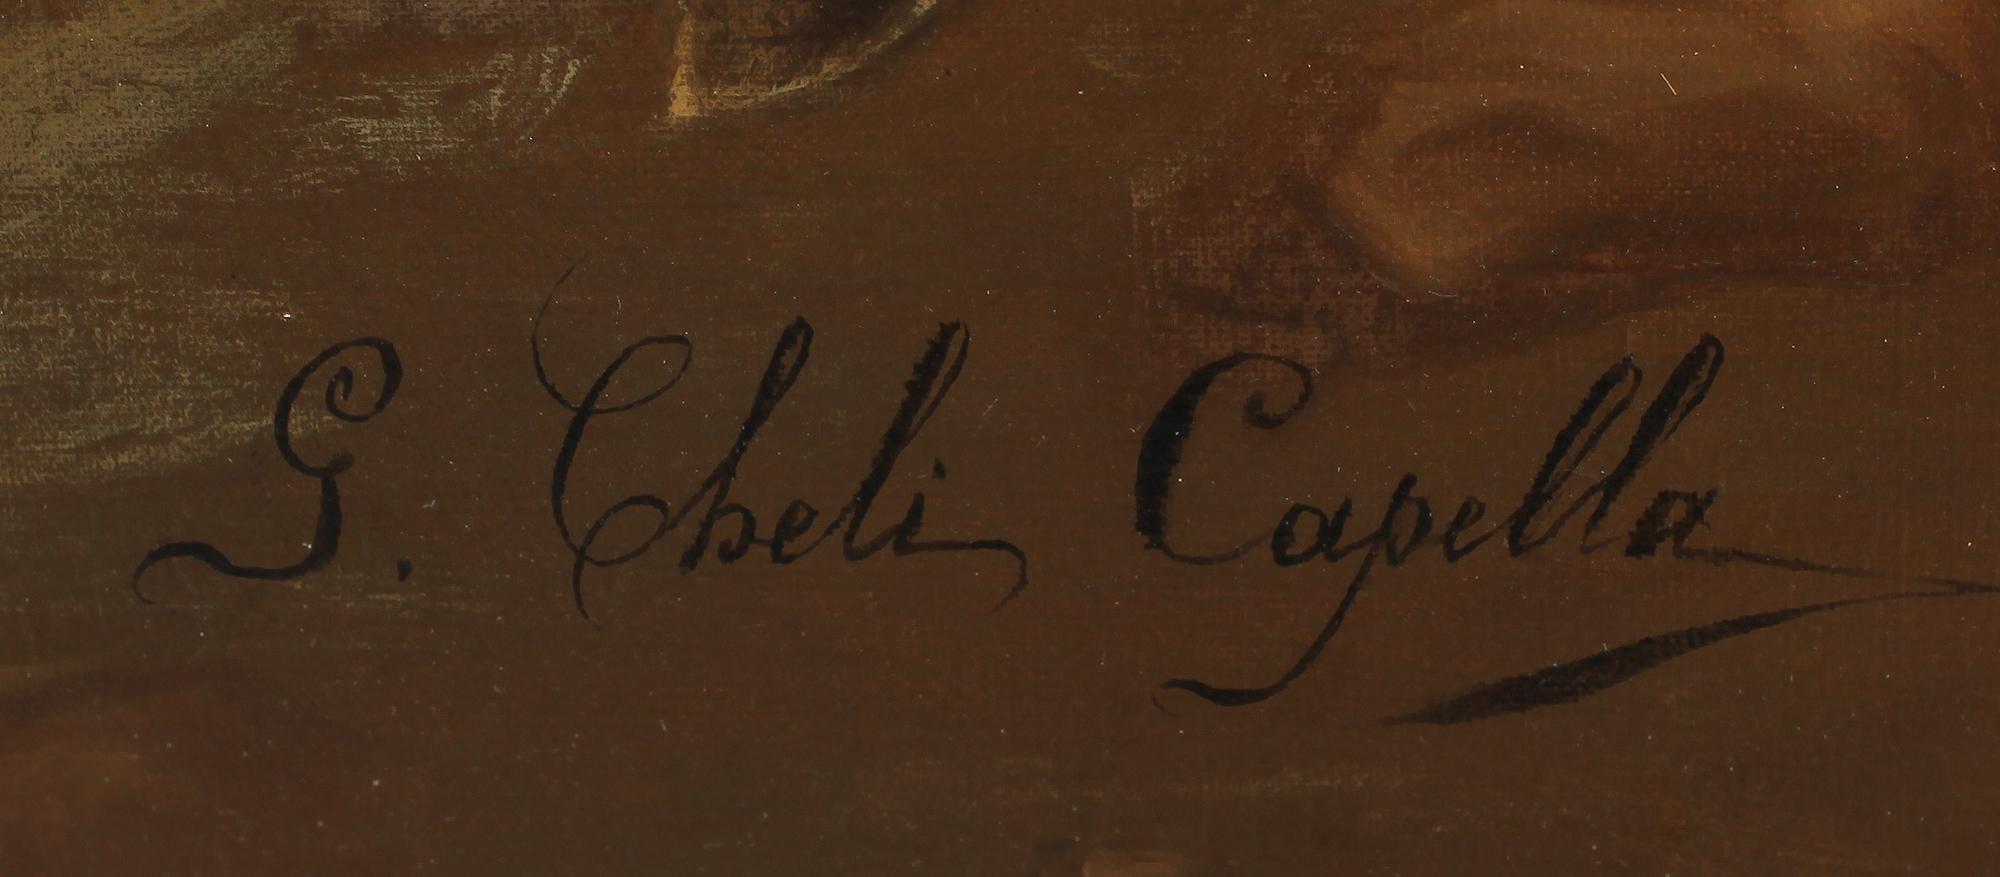 G. Cheli Capella